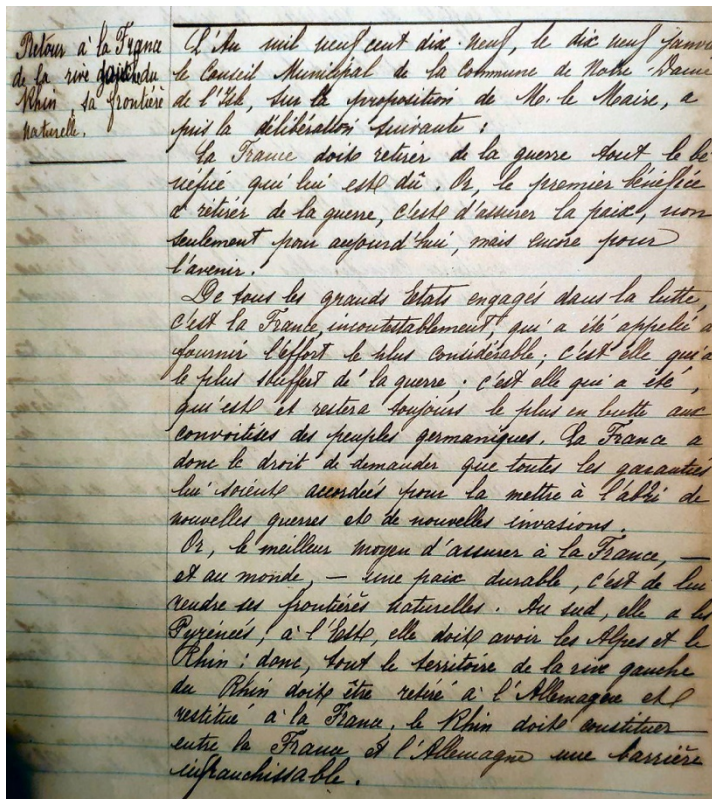 Retour à la France
de la rive gauche du
Rhin, sa frontière
naturelle.
L'An mil neuf cent dix-neuf, le dix neuf janvi
le Conseil Municipal de la Commune de Notre-Dame
de l'Isle, sur la proposition de M. le Maire, a
pris la délibération suivante :
La France doit retirer de la guerre tout le bé
néfice qui lui est dû. Or, le premier bénéfice
à retirer de la guerre, c'est d'assurer la paix, non
seulement pour aujourd'hui, mais encore pour
l'avenir.
De tous les grands Etats engagés dans la lutte,
c'est la France, incontestablement, qui a été appelée à
fournir l'effort le plus considérable ; c'est elle qui a
le plus souffert de la guerre ; c'est elle qui a été,
qui est et restera toujours le plus en butte aux
convoitises des peuples germaniques. La France a
donc le droit de demander que toutes les garanties
lui soient accordées pour la mettre à l'abri de
nouvelles guerres et de nouvelles invasions.
Or, le meilleur moyen d'assurer à la France, —
et au monde, — une paix durable, c'est de lui
rendre ses frontières naturelles. Au sud, elle a les
Pyrénées, à l'Est, elle doit avoir les Alpes et le
Rhin ; donc, tout le territoire de la rive gauche
du Rhin doit être retiré à l'Allemagne et
restitué à la France. le Rhin doit constituer
entre la France et l'Allemagne une barrière
infranchissable.